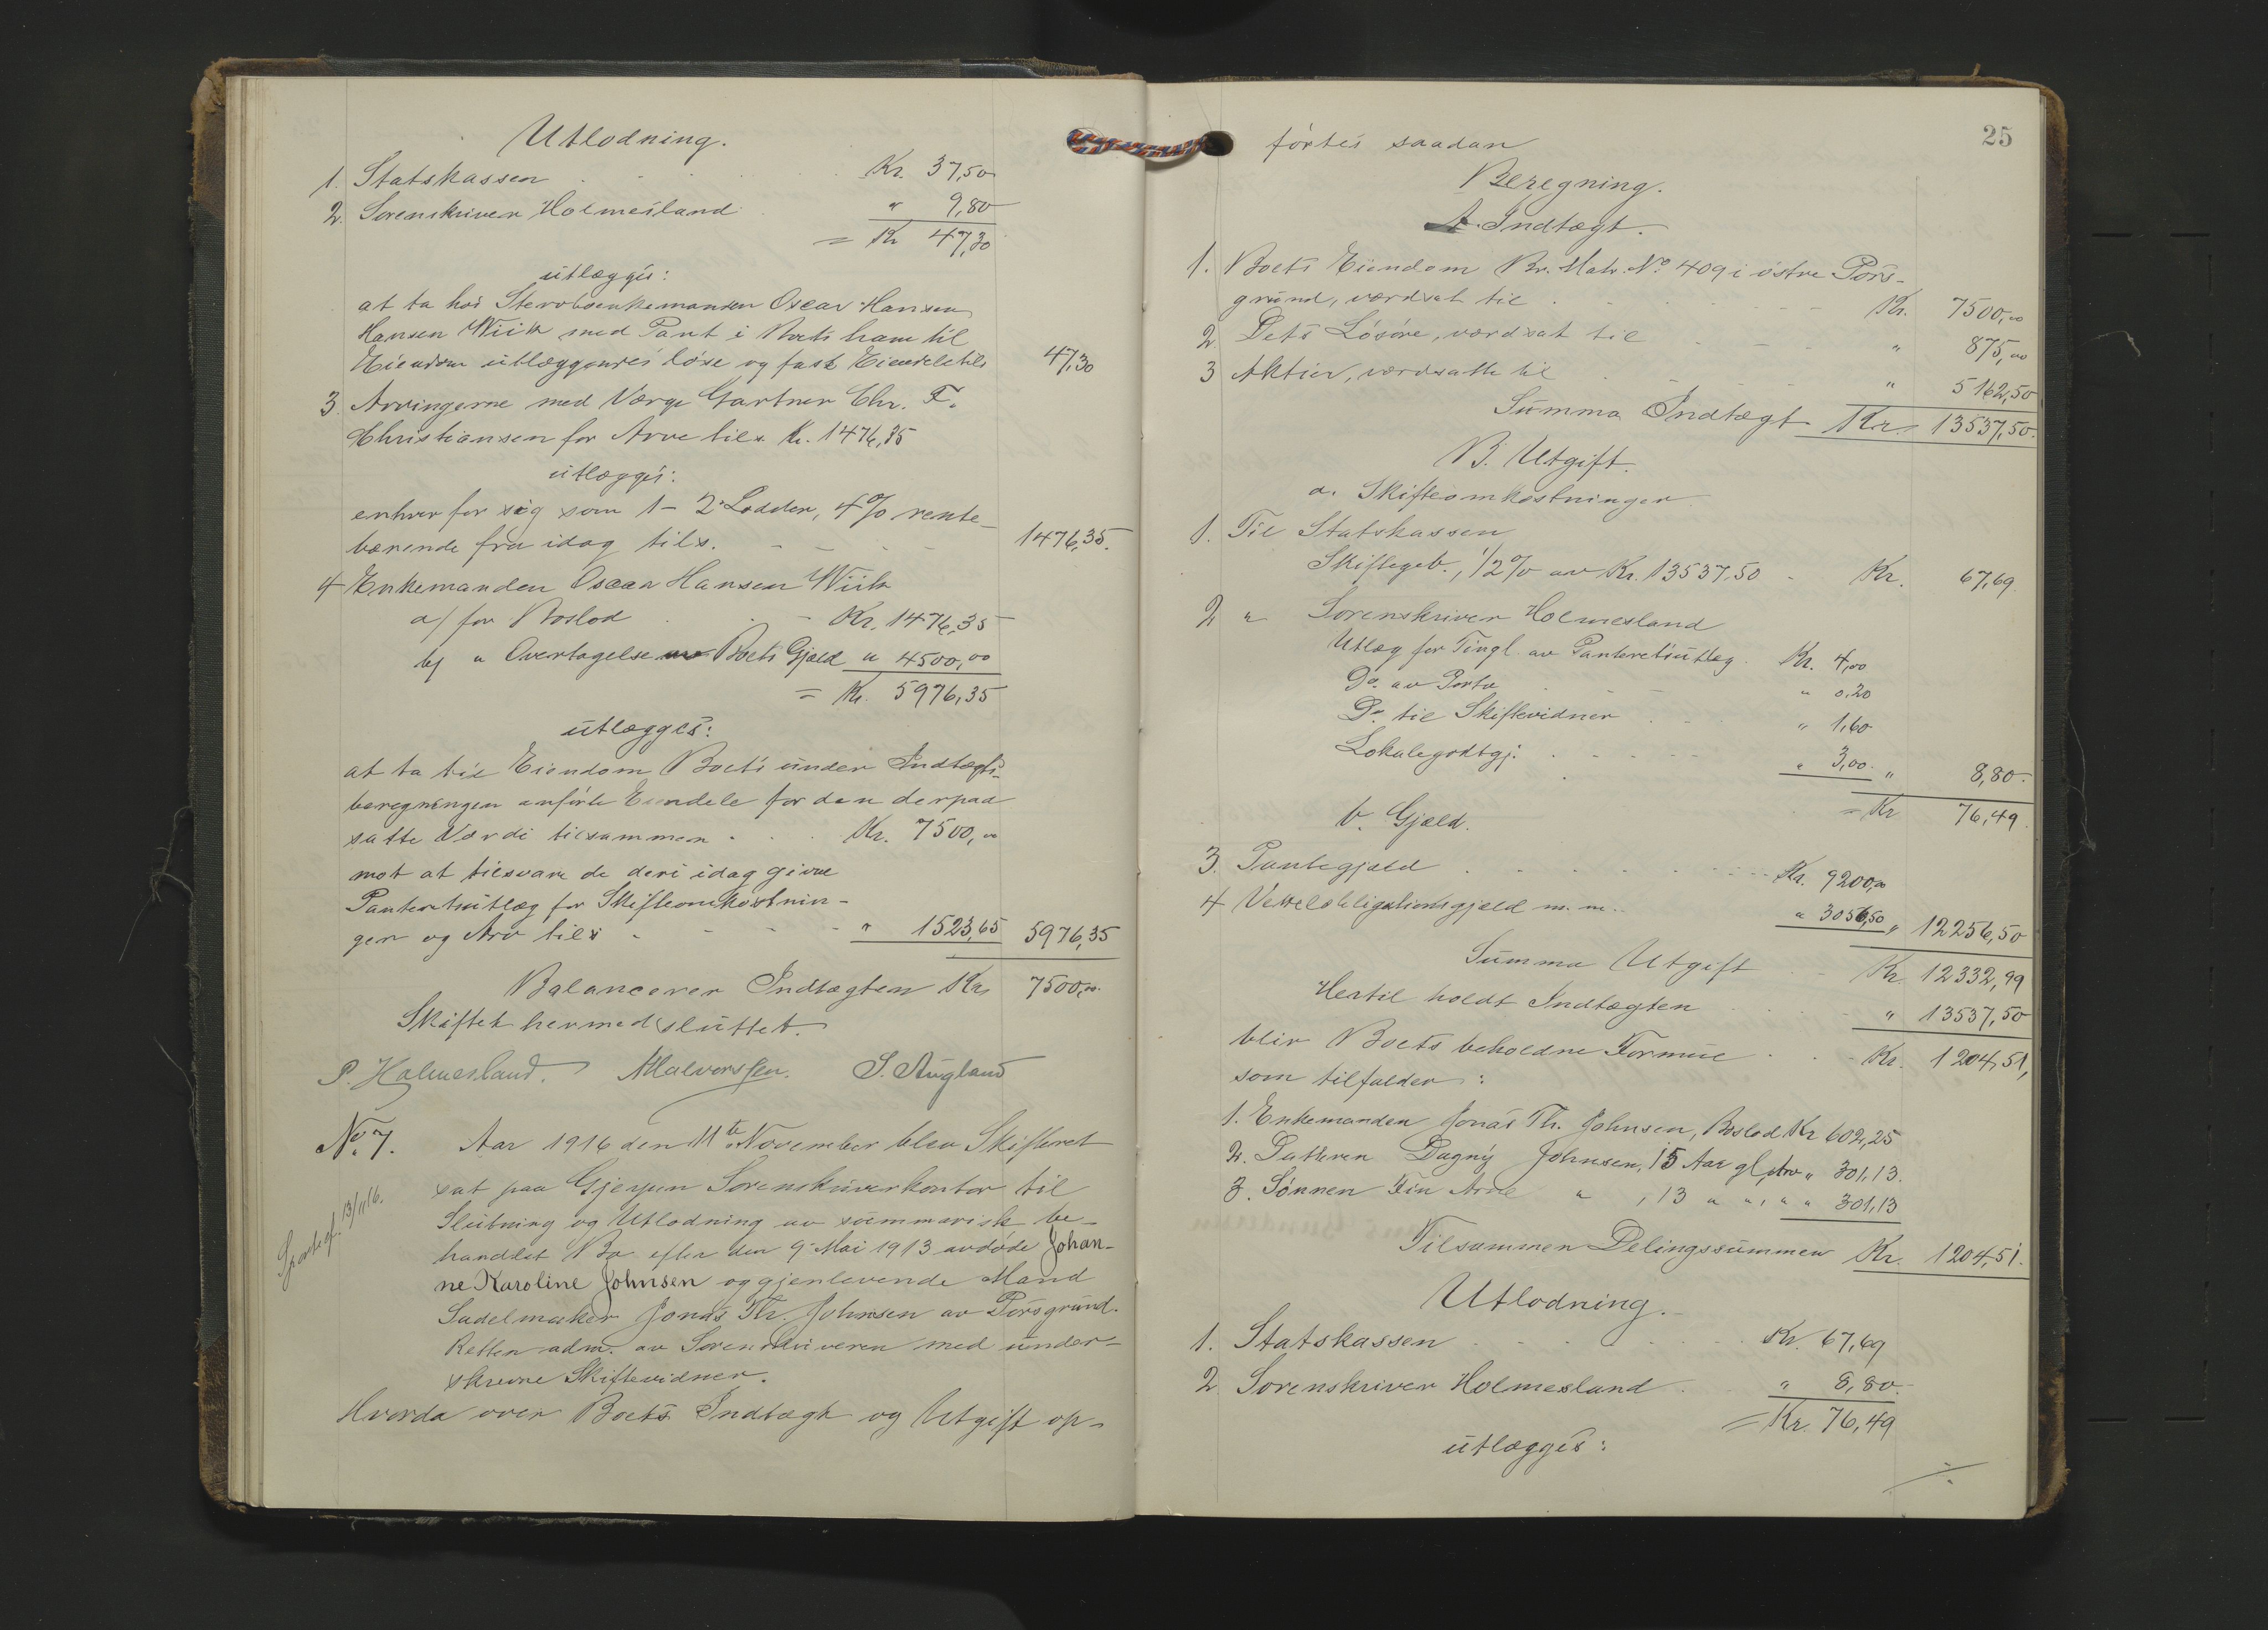 Utlodning.
1. Statskassen Kr. 37,50
2. Sorenskriver Holmesland " 9,80
= Kr 47,30
utlægges:
at ta hos Stervboenkemanden Oscar Hansen
Hansen Wiik med Pant i Boets ham til
Eiendom utlæggendes løse og fast Eiendele tils 47,30
3. Arvingerne med Værge Gartner Chr. F.
Christiansen for Arve tils. Kr. 1476,35
utlægges:
enhver for sig som 1-2 Lodder, 4% rente-
bærende fra idag tils. 1476,35.
4 Enkemanden Oscar Hansen Wiik
a/ for Boslod Kr. 1476,35
b/ " Overtagelse av Boets Gjæld " 4500,00
= Kr. 5976,35
utlægges:
at ta til Eiendom Boets under Indtægts-
beregningen anførte Eiendele for den derpaa
satte Værdi tilsammen Kr. 7500,00
mot at tilsvare de deri idag givne
Panteretsutlæg for Skifteomkostnin-
gen og Arv tils " 1523,65 5976,35
Balancerer Indtægten Kr. 7500,00.
Skiftet hermed sluttet.
P. Holmesland. A Halvorssen. S. Augland
No. 7. Aar 1916 den 11te November blev Skifteret
sat paa Gjerpen Sorenskriverkontor til
Slutning og Utlodning av summarisk be-
handlet Bo efter den 9. Mai 1913 avdøde Johan-
ne Karoline Johnsen og gjenlevende Mand
Sadelmaker Jonas Th. Johnsen av Porsgrund.
Retten adm. av Sorenskriveren med under-
skrevne Skiftevidner.
Hvorda over Boets Indtægt og Utgift op-
13/11 16.
25
førtes saadan
Beregning.
A. Indtægt.
1. Boets Eiendom Br. Matr. No. 409 i østre Pors-
grund, værdsat til Kr. 7500,00
2 Dets Løsøre, værdsat til " 875,00
3 Aktier, værdsatte til " 5162,50
Summa Indtægt Kr. 13537,50.
B. Utgift.
a. Skifteomkostninger
1. Til Statskassen
Skiftegeb., 1/2% av Kr. 13537,50 Kr. 67,69
2 " Sorenskriver Holmesland
Utlæg for Tingl. av Panteretsutlæg Kr. 4,00
Do. av Porto " 0,20
Do. til Skiftevidner " 1,60
Lokalegodtgj. " 3,00 " 8,80
= Kr 76,49
b. Gjæld.
3. Pantegjæld Kr. 9200,00
4 Vexelobligationsgjæld m. m. " 3056,50 " 12256,50
Summa Utgift Kr. 12332,99
Hertil holdt Indtægten " 13537,50
blir Boets beholdne Formue Kr. 1204,51,
som tilfalder:
1. Enkemanden Jonas Th. Johnsen, Boslod Kr 602,25
2. Datteren Dagny Johnsen, 15 Aar gl, Arv " 301,13.
3. Sønnen Fin Arne " , 13 " " , " " 301,13
Tilsammen Delingssummen Kr. 1204,51.
Utlodning.
1. Statskassen Kr. 67,69
2 Sorenskriver Holmesland " 8,80
= Kr. 76,49
utlægges: